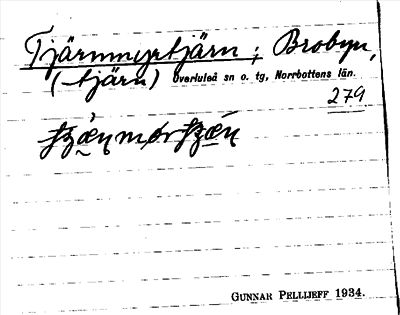 Tjärnmyrtjärn ; Brobyn,
(tjärn) Överluleå sn o. tg, Norrbottens län.
279
GUNNAR PELLIJEFF 1934.